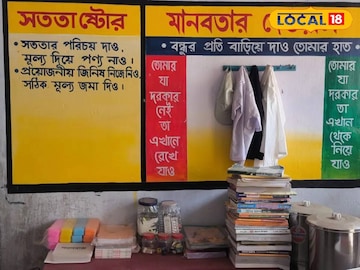 সততাষ্টোর
• সততার পরিচয় দাও,
মূল্য দিয়ে পণ্য নাও।
• প্রয়োজনীয় জিনিষ নিজে নিও,
সঠিক মূল্য জমা দিও।
মানবতার
• বন্ধুর প্রতি বাড়িয়ে দাও তোমার হাত •
তোমার
যা
দরকার
নেই
তা
এখানে
রেখে
যাও
তোমার
যা
দরকার
তা
এখান
থেকে
নিয়ে
যাও
LOCAL 18